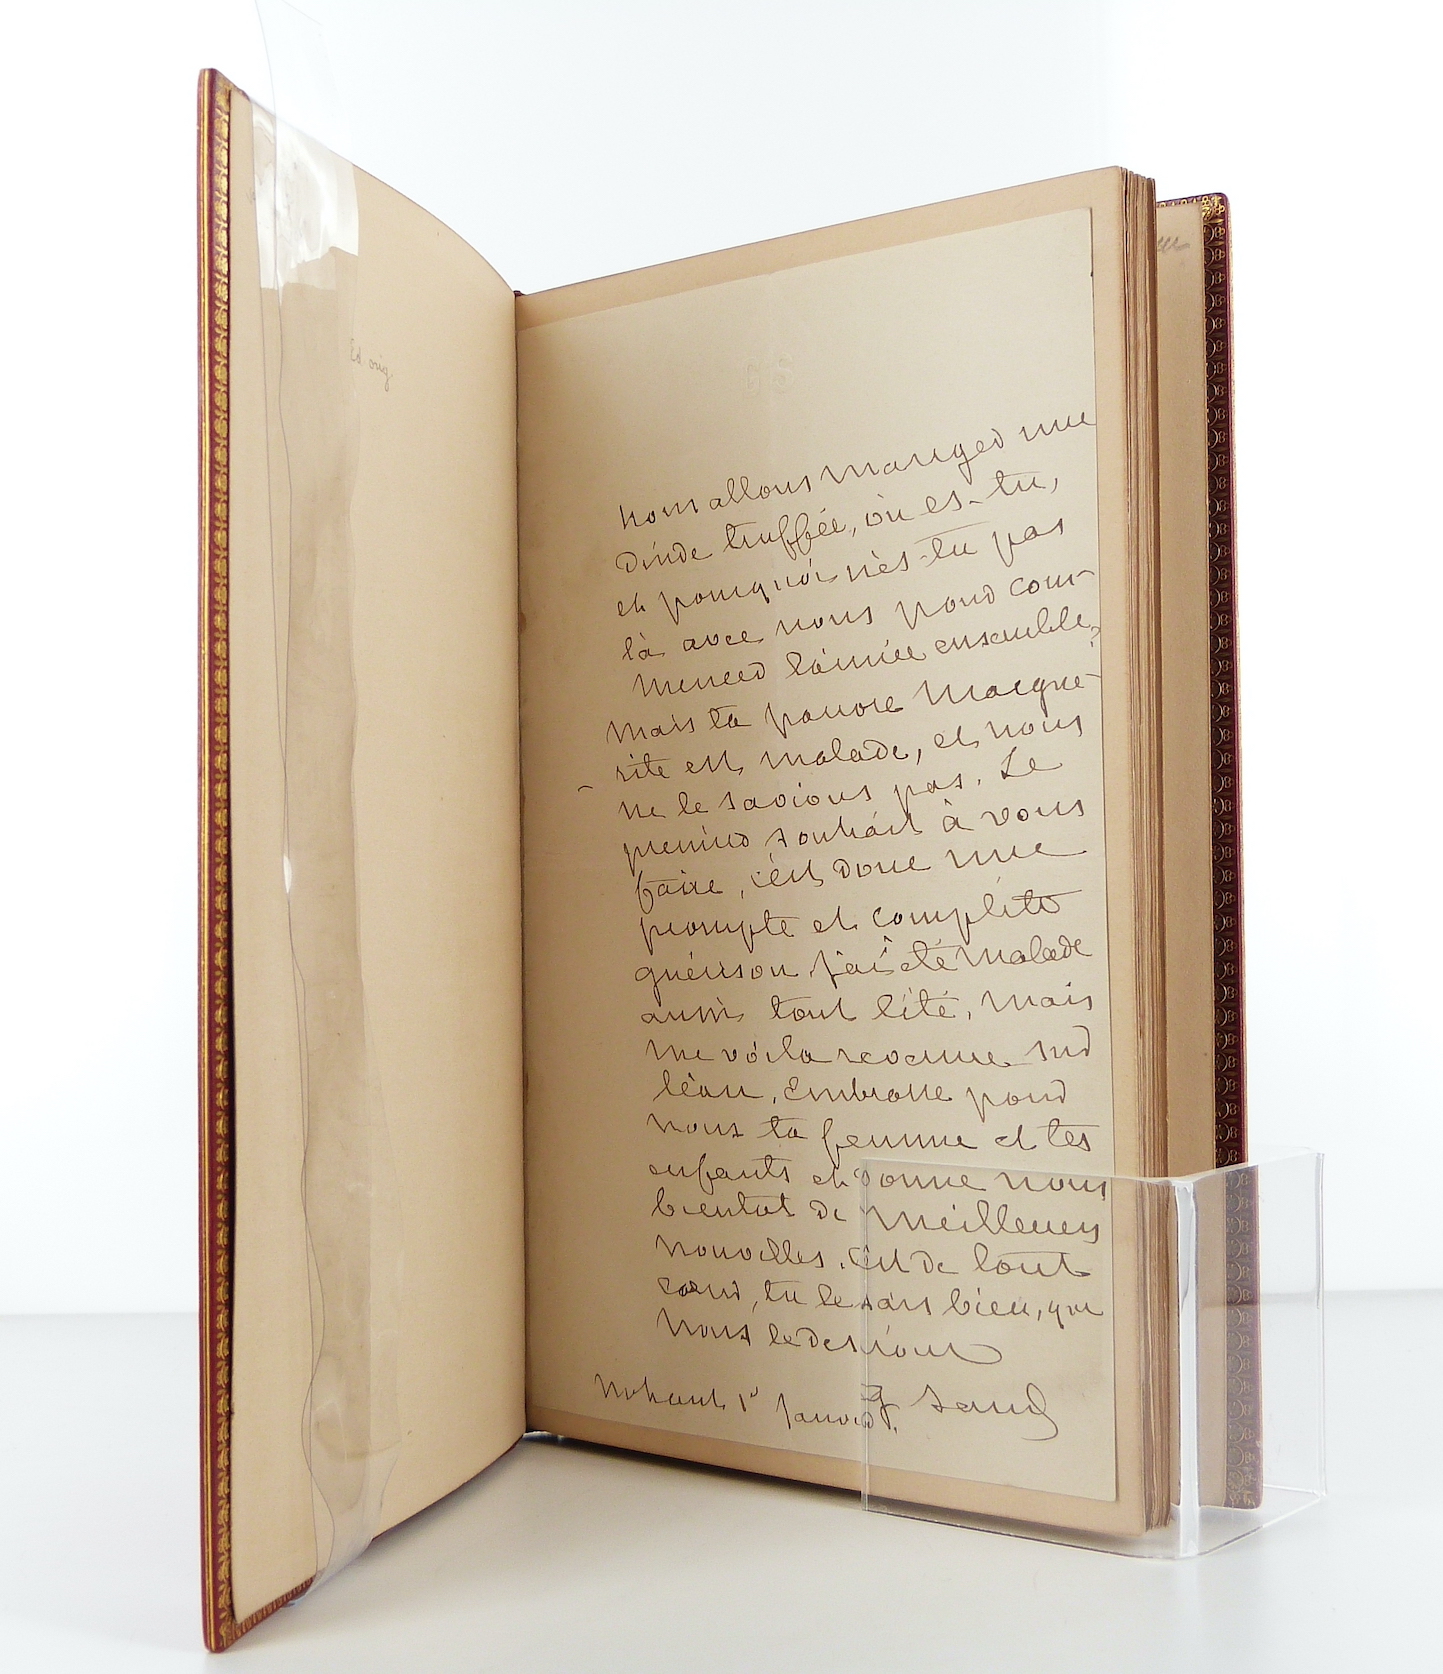 Ed orig.
GS
nous allons manger une
dinde truffée, où es-tu,
et pourquoi n'ès-tu pas
là avec nous pour com-
mencer l'année ensemble?
Mais ta pauvre Margue-
rite est malade, et nous
ne le savions pas. Le
premier souhait à vous
faire, c'est donc une
prompte et complète
guérison. j'ai été malade
aussi tout l'été, mais
me voila revenue sur
l'eau. Embrasse pour
nous ta femme et tes
enfants et donne nous
bientot de meilleures
nouvelles. C'est de tout
cœur, tu le sais bien, que
nous le desirons
G Sand
Nohant 1r janvier.